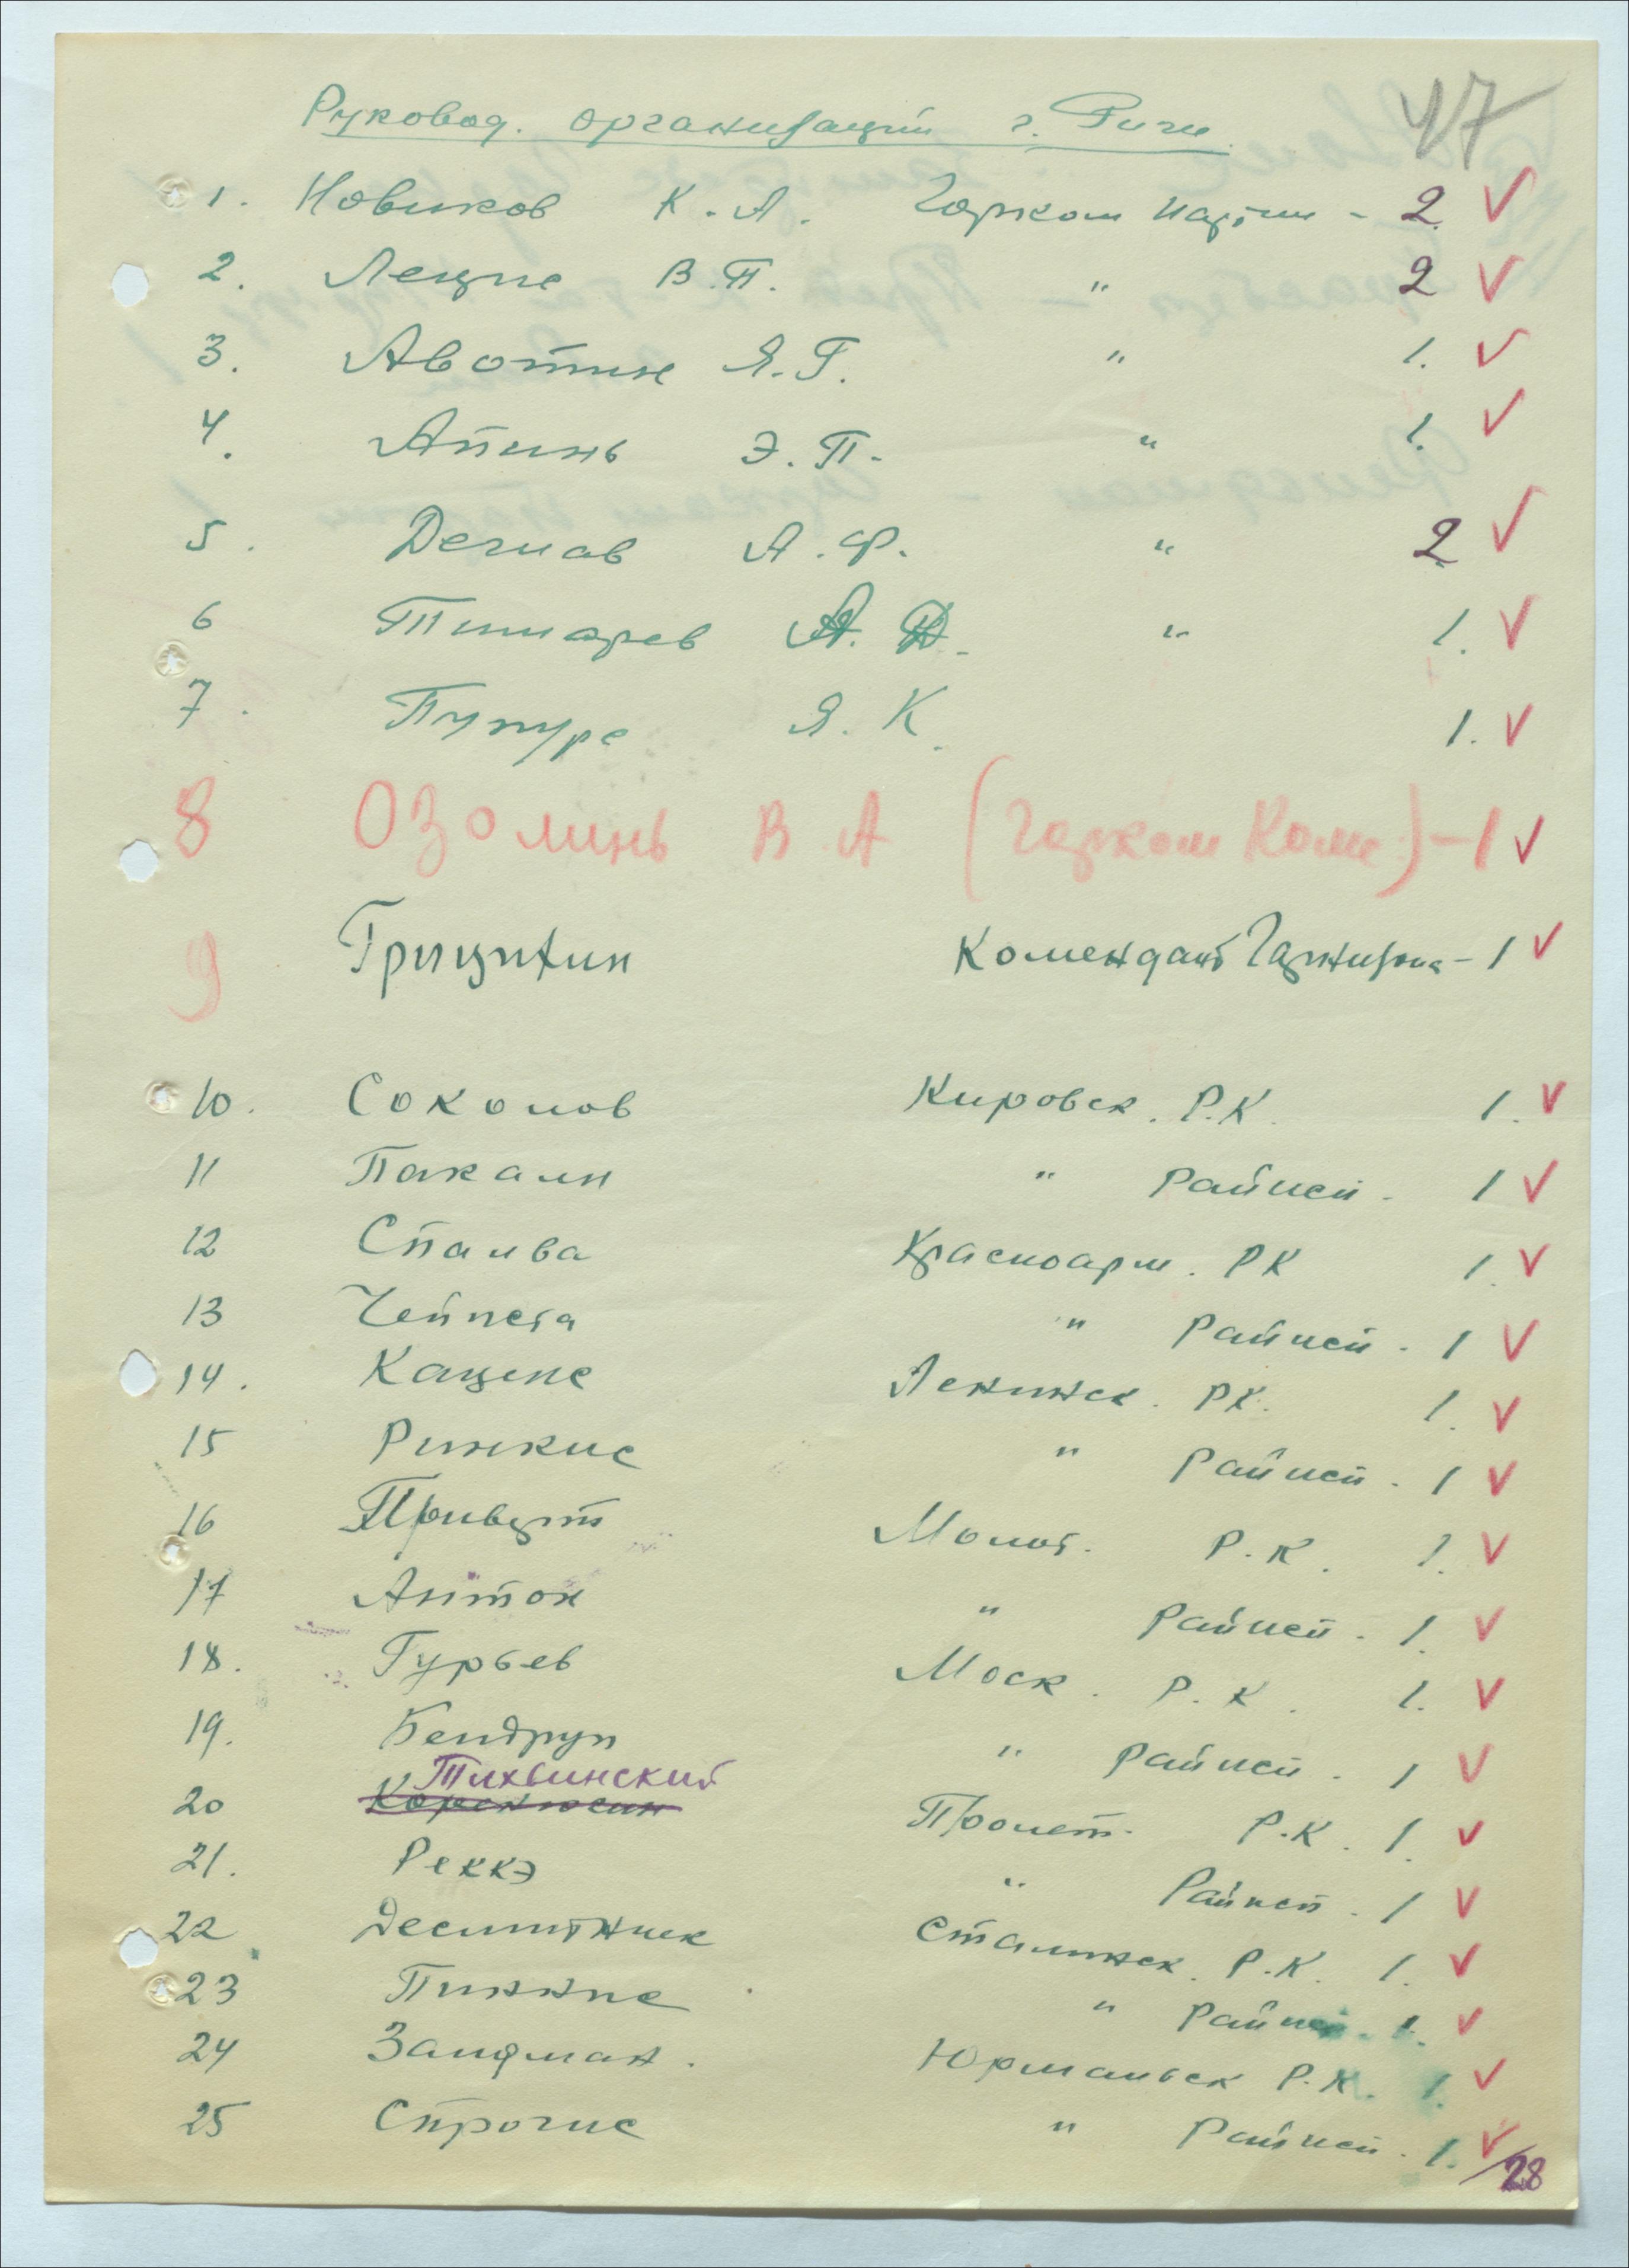 47
Руковод. организаций г. Риги
1. Новиков К.А. Горком партии - 2 ✓
2. Лецис В.П. " 2 ✓
3. Авотин Я.Г. " 1. ✓
4. Апинь Э.П. " 1. ✓
5. Деглав А.Ф. " 2 ✓
6 А. Д. " 1. ✓
7. Пупуре Я.К. 1. ✓
8 Озолинь В А (Горком Ком.) - 1 ✓
9 Грицихин Комендант Гарнизона - 1 ✓
10. Соколов Кировск. Р.К. 1. ✓
11 Пакалн " райисп. 1 ✓
12 Спалва Красноарм. РК 1. ✓
13 " райисп. 1 ✓
14. Каценс Ленинск. РК. 1. ✓
15 Ринкис " райисп. 1 ✓
16 Молот. Р.К. 1. ✓
17 Антон " райисп. 1. ✓
18. Гурьев Моск. Р.К. 1. ✓
19. Бендруп " райисп. 1 ✓
Тихвинский
20 Пролет. Р.К. 1. ✓
21. Реккэ " Райисп. 1 ✓
22 Деситник Сталинск. Р.К. 1. ✓
23 Пиннис " райисп. 1. ✓
24 Зандман. Юрмальск Р.К. 1. ✓
25 Строгис " Райисп. 1. ✓
/28